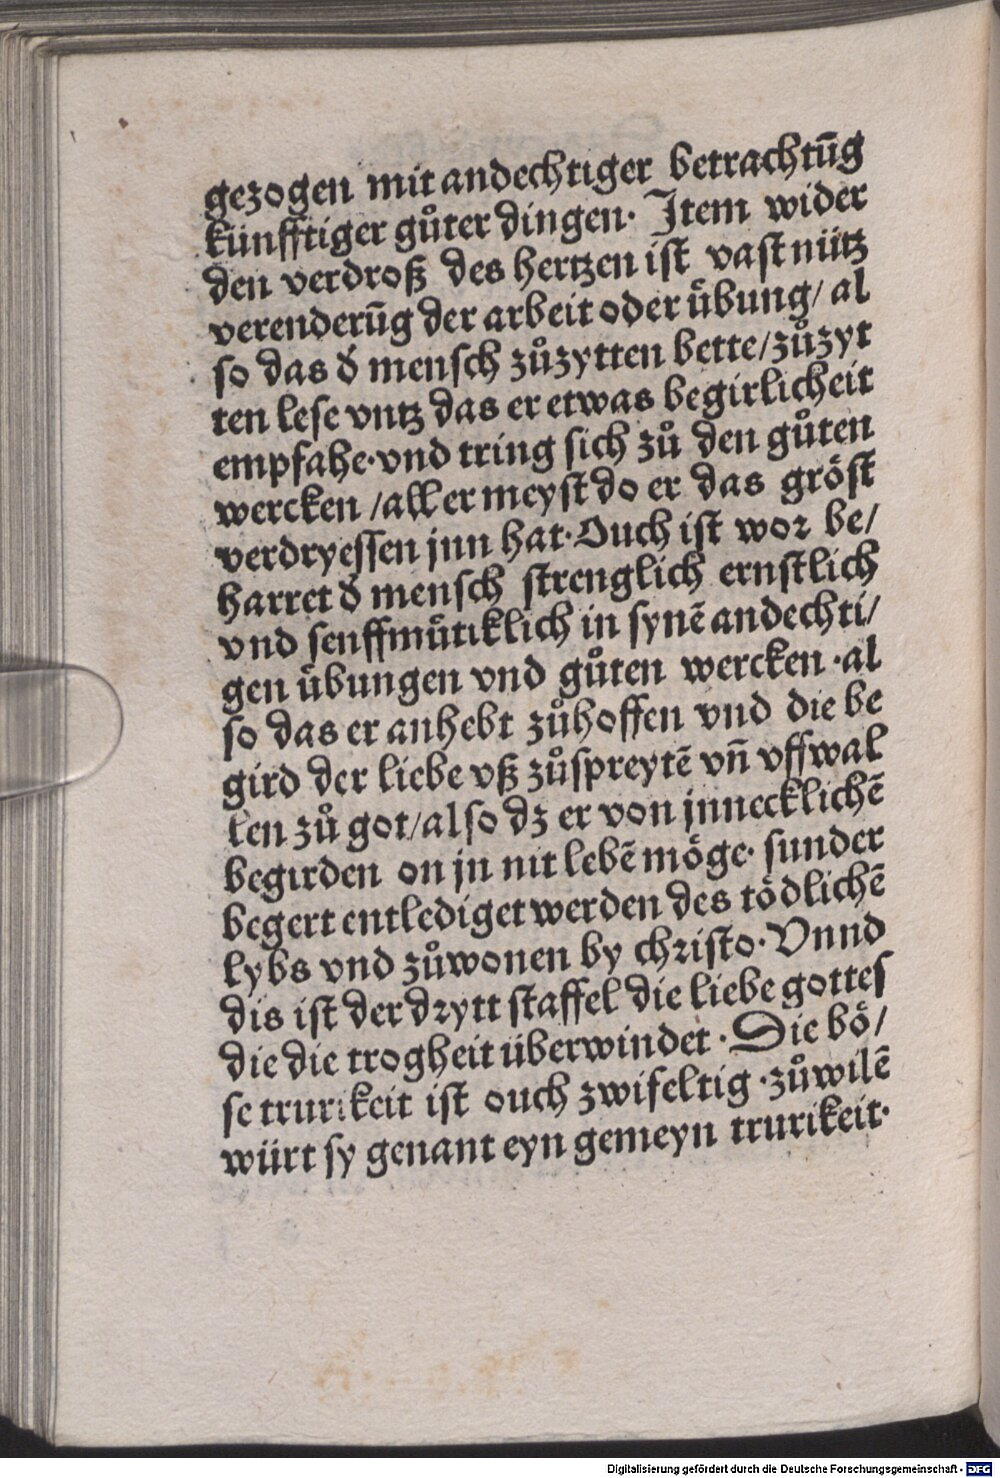 gezogen mit andechtiger betrachtūg
künfftiger gůter dingen· Item wider
den verdroß des hertzen ist vast nütz
verenderūg der arbeit oder u̇̈bung/ al
so das ď mensch zůzytten bette/zůzyt
ten lese vntz das er etwas begirlicheit
empfahe·vnd tring sich zů den gůten
wercken /aller meyst do er das gröst
verdryessen jnn hat·Ouch ist wor be/
harret ď mensch strenglich ernstlich
vnd senffmütiklich in synē andechti/
gen übungen vnd gůten wercken ·al
so das er anhebt zůhoffen vnd die be
gird der liebe vß zůspreytē vn̄ vffwal
len zů got/also dz er von jnnecklichē
begirden on jn nit lebē möge· sunder
begert entlediget werden des tödlichē
lybs vnd zůwonen by christo·Vnnd
dis ist der drytt staffel die liebe gottes
die die trogheit überwindet ·Die bö/
se trurikeit ist ouch zwifeltig ·zůwilē
würt sy genant eyn gemeyn trurikeit·
Digitalisierung gefördert durch die Deutsche Forschungsgemeinschaft - DFG